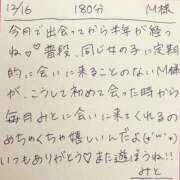 12/16 180分 M様
今月で出会ってから半年が経つ
ね♡普段、同じ女の子に定期
的に会いに来ることのないM様
が、こうして初めて会った時から
毎月みとに会いに来てくれるの
めちゃくちゃ嬉しいんだよ(*´꒳`*)
いつもありがとう♡また遊ぼうね!!
みと